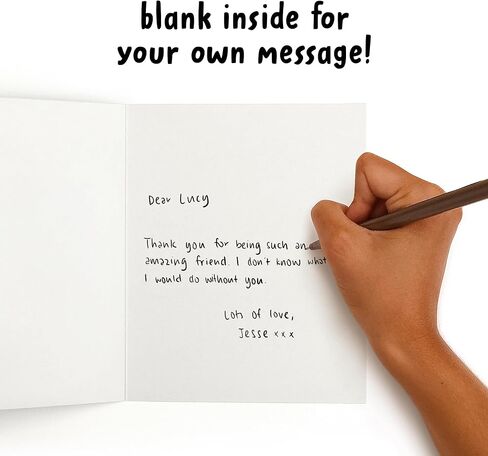 blank inside for
your own message!
Dear Lucy
Thank you for being such an
amazing friend. I don't know what
I would do without you.
Lots of love,
Jesse x x x